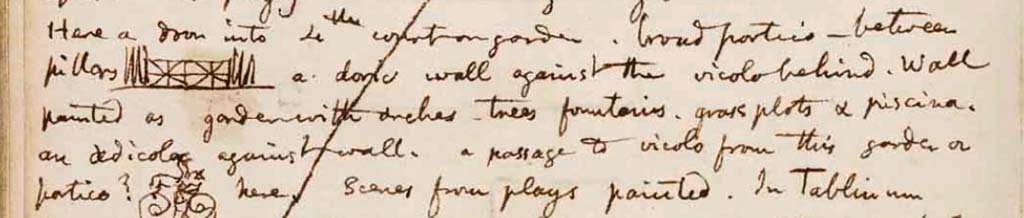 Here a door into 4th court or garden. broad portico - between
pillars a doric wall against the vicolo behind. Wall
painted as garden with arches trees fountains. grass plots & piscina.
an ædicola against wall. a passage to vicolo from this garden or
portico? here. Scenes from plays painted. In Tablinum